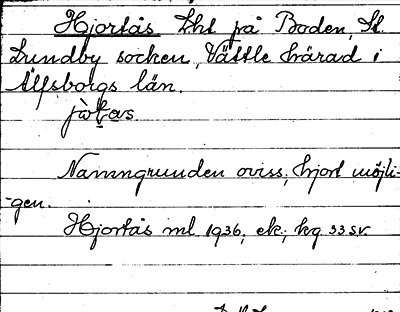 Hjortås Lht på Boden, St.
Lundby socken, Vättle härad i
Älfsborgs län.
Namngrunden oviss; hjort möjli-
-gen.
Hjortås ml 1936, ek., kg 33 sv.